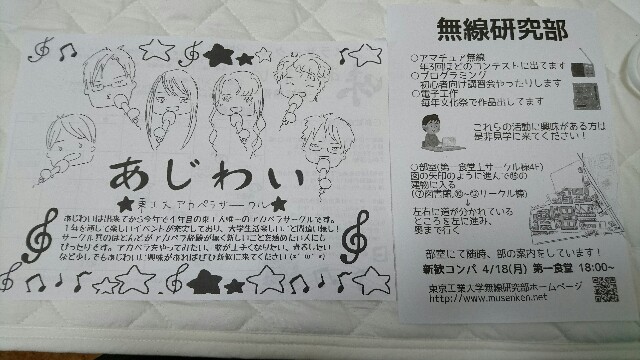 あじわい
★東工大アカペラサークル★
あじわいは出来てから今年で4年目の東工大唯一のアカペラサークルです。
1年を通して楽しいイベントが充実しており、大学生活楽しいこと間違い無し!
サークル員のほとんどがアカペラ経験が無く新しいことを始めたい人にも
ぴったりです。アカペラをやってみたい、歌が上手くなりたい、青春したい
など少しでもあじわいに興味があればぜひ新歓に来てください
無線研究部
○アマチュア無線
年3回ほどのコンテストに出てます
○プログラミング
初心者向け講習会やったりします
○電子工作
毎年文化祭で作品出してます
これらの活動に興味がある方は
是非見学に来てください!
○部室(第一食堂上サークル棟4F)
図の矢印のように進んで
建物に入る
↓
左右に道が分かれている
ところを左に進み、
奥まで行く
部室にて随時、部の案内をしています!
新歓コンパ 4/18(月) 第一食堂 18:00~
東京工業大学無線研究部ホームページ
http://www.musenken.net